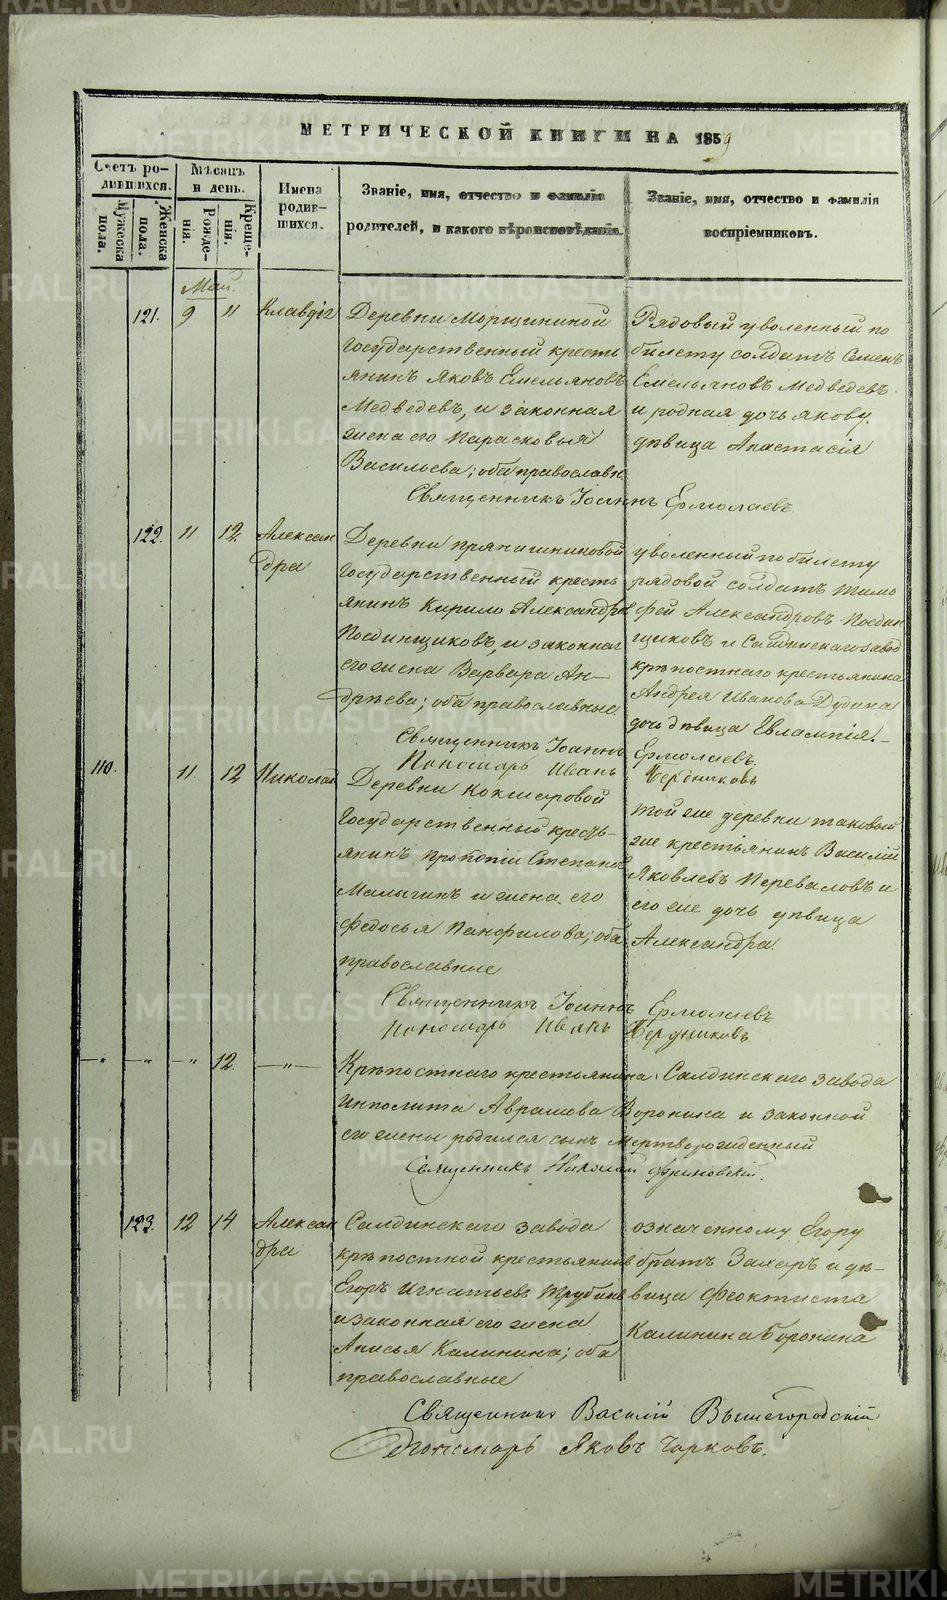 МЕТРИЧЕСКОЙ КНИГИ НА 1859
Счетъ родившихся.
Мѣсяцъ и день.
Имена родившихся.
Званіе, имя, отчество и фамилія
родителей, и какого вѣроисповѣданія.
Званіе, имя, отчество и фамилія
воспріемниковъ.
Мужеска пола.
Женска пола.
Рожденія.
Крещенія.
Май.
121. 9 11 Клавдія
Деревни Морщининой
Государственный кресть
янинъ Яковъ Емельяновъ
Медведевъ, и законная
жена его Парасковья
Васильева; оба православн
Рядовый уволенный по
билету солдатъ Семенъ
Емельяновъ Медведевъ
и родная дочь Якову
дѣвица Анастасія
Священникъ Іоаннъ Ермолаевъ
122. 11 12 Алексан
дра
Деревни Прянишниковой
Государственный кресть
янинъ Кирило Александров
Поединщиковъ, и законная
его жена Варвара Ан-
дрѣева; оба православные.
уволенный по билету
рядовой солдатъ Тимо
фей Александровъ Поедин
щиковъ и Салдинскаго завод
крѣпостнаго крестьянина
Андрея Иванова Дудина
дочь дѣвица Евлампія.
Священникъ Іоаннъ Ермолаевъ.
Пономарь Иванъ Бердниковъ
110. 11 12 Николай
Деревни Кокшаровой
Государственный кресть-
янинъ Прокопій Степановъ
Малыгинъ и жена его
Федосья Панфилова; оба
православные
той же деревни таковый
же крестьянинъ Василій
Яковлевъ Переваловъ и
его же дочь дѣвица
Александра.
Священникъ Іоаннъ Ермолаевъ
Пономарь Иванъ Бердниковъ
—"— —"— —"— 12. —"—
Крѣпостнаго крестьянина Салдинскаго завода
Ипполита Аврамова Воронина и законной
его жены родился сынъ мертворожденный
Священникъ Николай
123. 12 14 Алексан
дра
Салдинскаго завода
крѣпостной крестьянинъ
Егоръ Игнатьевъ Трубинъ
и законная его жена
Анисья Калинина; оба
православные
означенному Егору
братъ Захаръ и дѣ-
вица Феоктиста
Калинина Воронина
Священникъ Василій Вышегородскій
Пономарь Яковъ Чирковъ.
METRIKI.GASO-URAL.RU